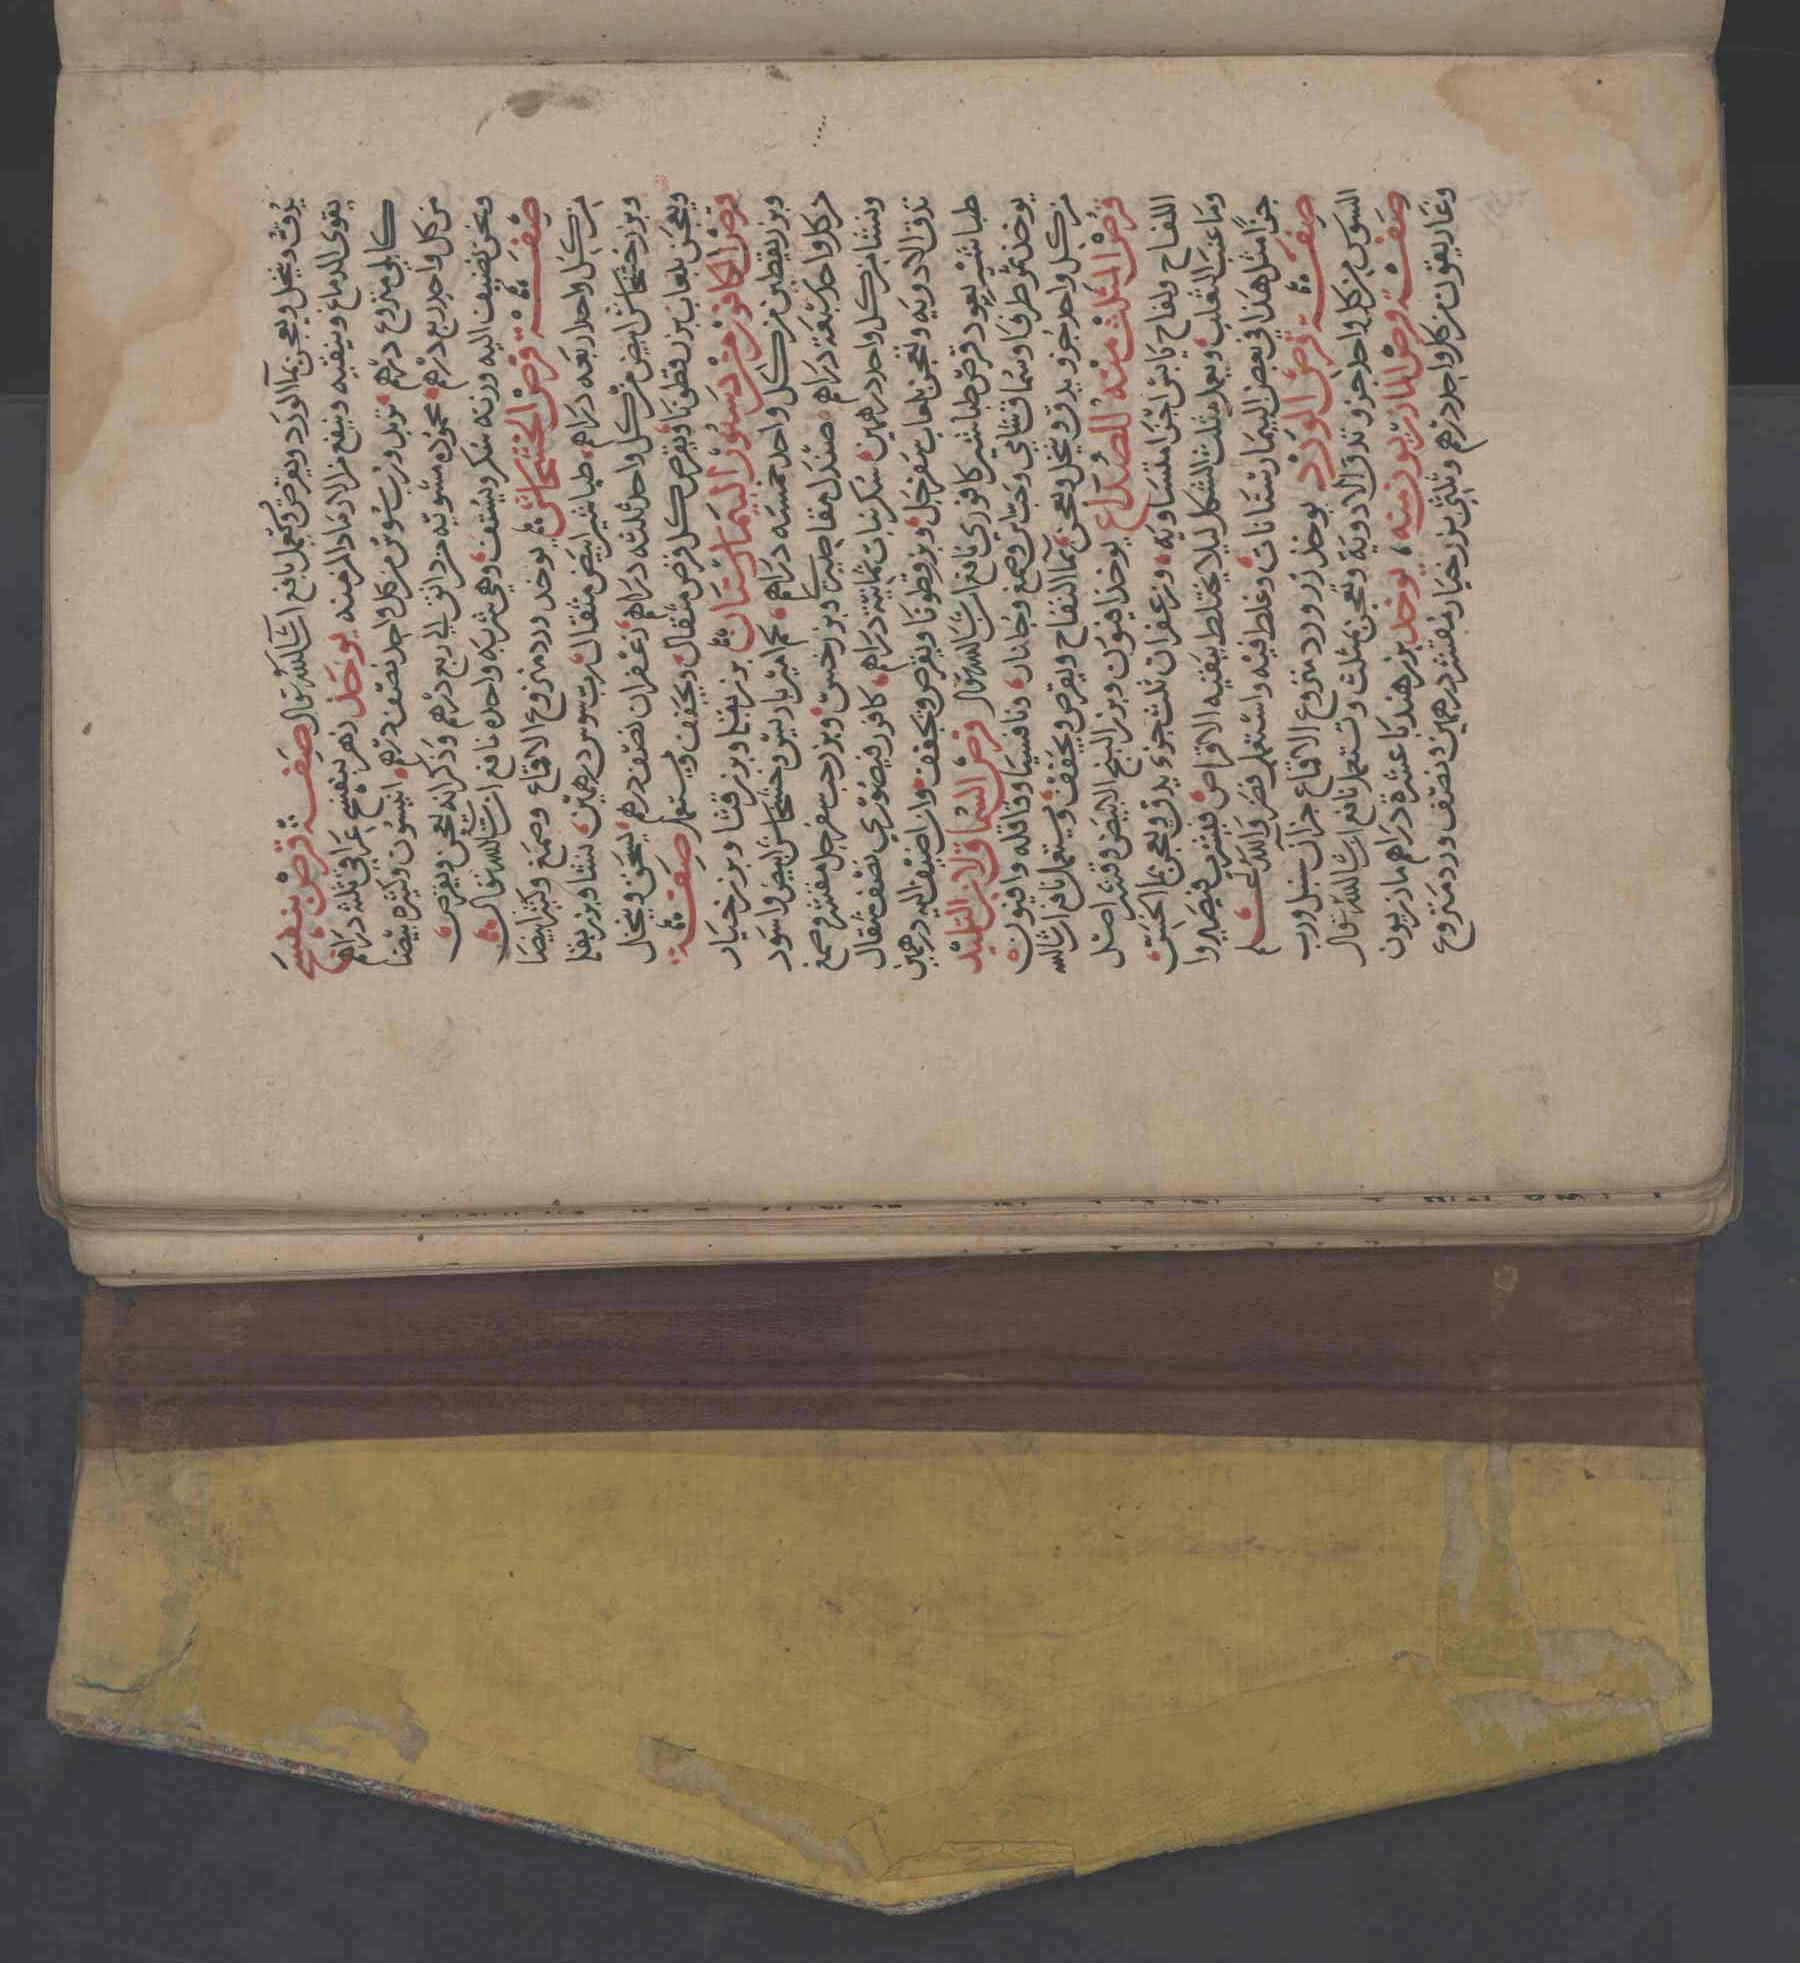 يدق وينخل ويعجن بما الورد ويقرص ويستعمل نافع ان شا الله تعالى صفة قرص بنفسج
يقوى الدماغ وينقيه وينفع من الارماد المزمنه يوخذ زهر بنفسج عراقي ثلثه دراهم
كابلي منزوع درهم تربد ورب سوس من كل واحد نصف درهم انيسون وكثيره بيضا
من كل واحد ربع درهم محموده مشويه من دانق الى ربع درهم وذكر انه يعجن ويقرص
ونحن نضيف اليه وزنه سكر ويستف وهي شربه واحده نافع ان شا الله تعالى
صفة قرص الخشخاش يوخذ ورد منزوع الاقماع وصمغ وكثيرا بيضا
من كل واحد اربعه دراهم طباشير ابيض مثقال رب سوس درهمين نشا وبزر بقله
وبزر خشخاش ابيض من كل واحد ثلثه دراهم زعفران نصف درهم يسحق وينخل
ويعجن بلعاب بزر قطونا ويقرص كل قرص مثقال ويجفف ويستعمل صفة
قرص الكافور من دستور البيمارستان بزر بقله وبزر قثا وبزر خيار
وبزر يقطين من كل واحد خمسه دراهم امير باريس وخشخاش ابيض واسود
من كل واحد سبعة دراهم صندل مقاصيري وبزر خس وبزر حب سفرجل مقشر وصمغ
ونشا من كل واحد درهمين سكر نبات ثمانية دراهم كافور فيصوري نصف مثقال
تدق الادويه وتعجن بلعاب سفرجل وبزر قطونا ويقرص ويجفف وان اضيف اليه درهمين
طباشير يعود قرص طباشير كافوري نافع ان شا الله تعالى قرص السماق لابن التلميذ
يوخذ ثمر طرفا وسماق شامي وحب اس وصمغ وجلنار واقاقيا وقاقله وافيون
من كل واحد جزو يدق وينخل ويعجن بما التفاح ويقرص ويجفف ويستعمل نافع ان شا الله
قرص المثلث منه للصداع يوخذ افيون وبزر البنج الابيض وقشر اصل
اللفاح ولفاح يابس اجزا متساويه وزعفران ثلث جزو يدق ويعجن بما الخس
وما عنب الثعلب ويعمل مثلث الشكل ليلا يختلط ببقيه الاقراص فيشرب
جرا مثل هذا في بعض البيمارستانات وغلط فيه واستعمل فضر والله اعلم
صفة قرص الورد يوخذ زر ورد منزوع الاقماع جزان سنبل ورب
السوس من كل واحد جزو تدق الادوية ويعجن بمثلث وتستعمل نافع ان شا الله تعالى
صفة قرص المازريون منه يوخذ بزر هندبا عشرة دراهم مازريون
وغاريقون من كل واحد درهم وثلثي بزر خيار مقشر درهمين ونصف ورد منزوع